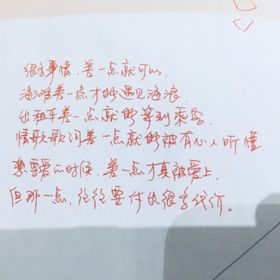 很多事情，差一点就可以，
海滩差一点才能遇见海浪，
出租车差一点就能等到乘客
情歌歌词差一点就能被有心人听懂，
想要爱的时候，差一点才真被爱上，
但那一点，往往要付出很多代价。